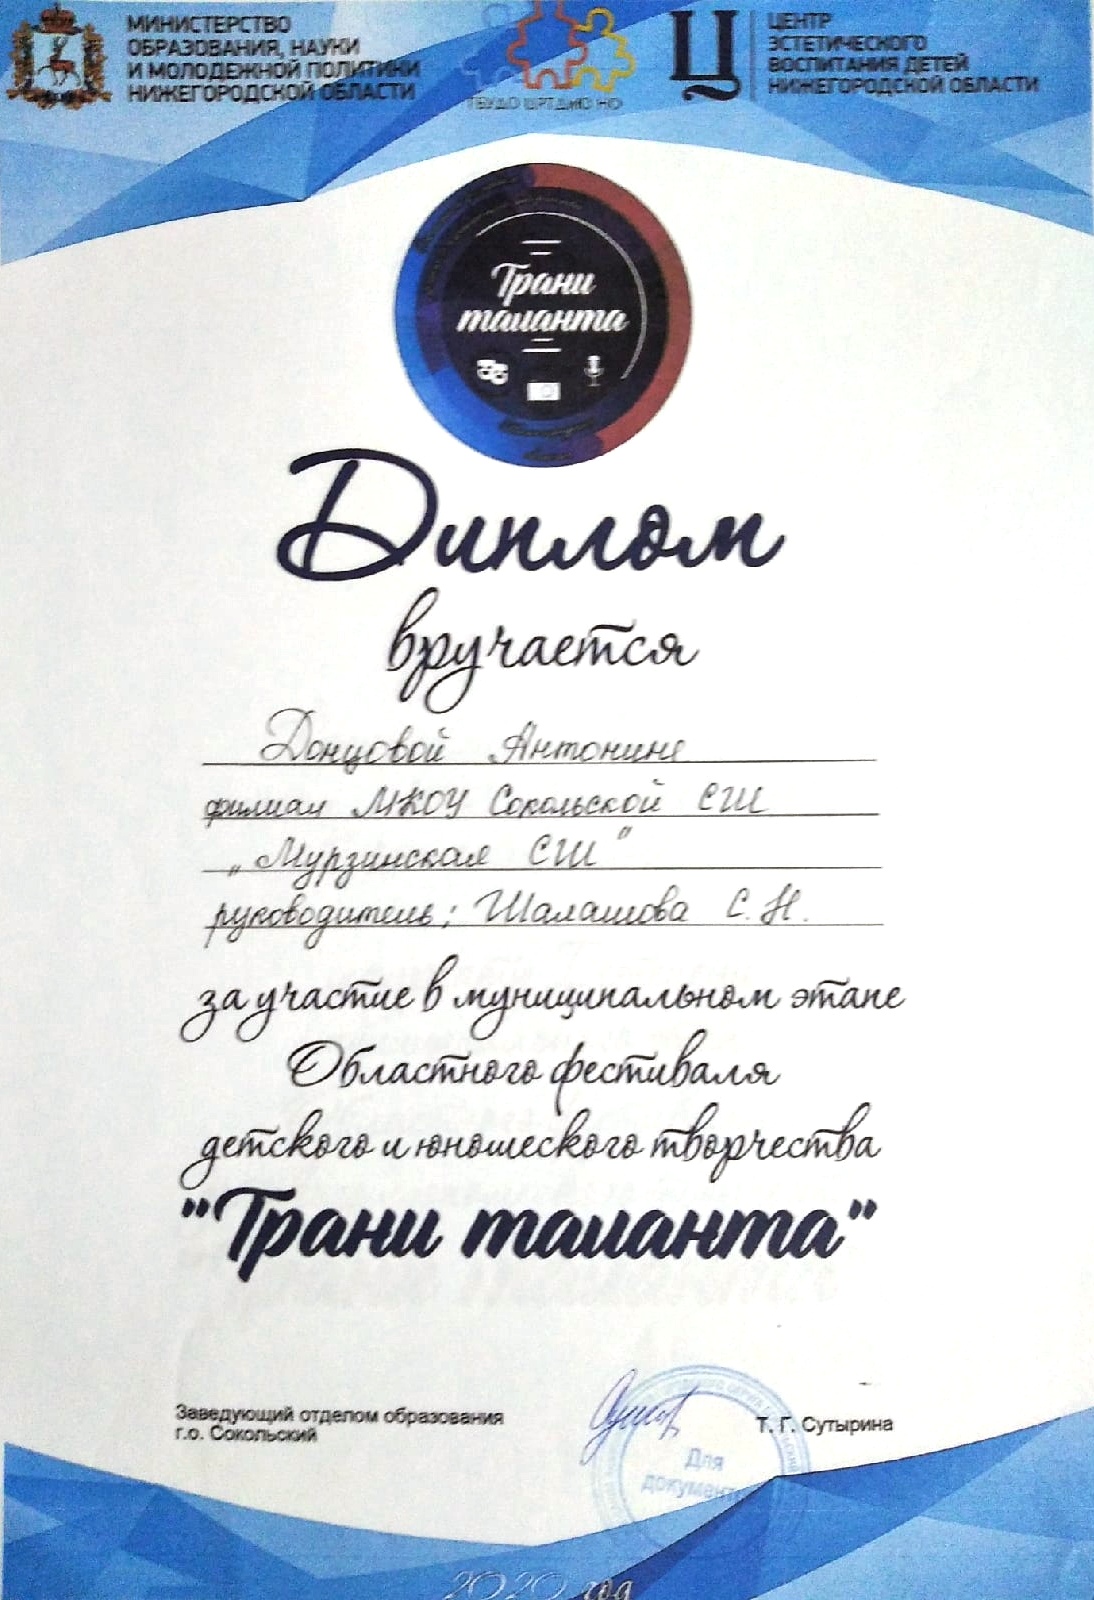 МИНИСТЕРСТВО
ОБРАЗОВАНИЯ, НАУКИ
И МОЛОДЕЖНОЙ ПОЛИТИКИ
НИЖЕГОРОДСКОЙ ОБЛАСТИ
ГБУДО ЦРТДиЮ НО
Ц
ЦЕНТР
ЭСТЕТИЧЕСКОГО
ВОСПИТАНИЯ ДЕТЕЙ
НИЖЕГОРОДСКОЙ ОБЛАСТИ
Грани
таланта
Диплом
вручается
Донцовой Антонине
филиал МКОУ Сокольской СШ
„Мурзинская СШ"
руководитель: Шалашова С.Н.
за участие в муниципальном этапе
Областного фестиваля
детского и юношеского творчества
"Грани таланта"
Заведующий отделом образования
г.о. Сокольский
Т. Г. Сутырина
Для
2020 год